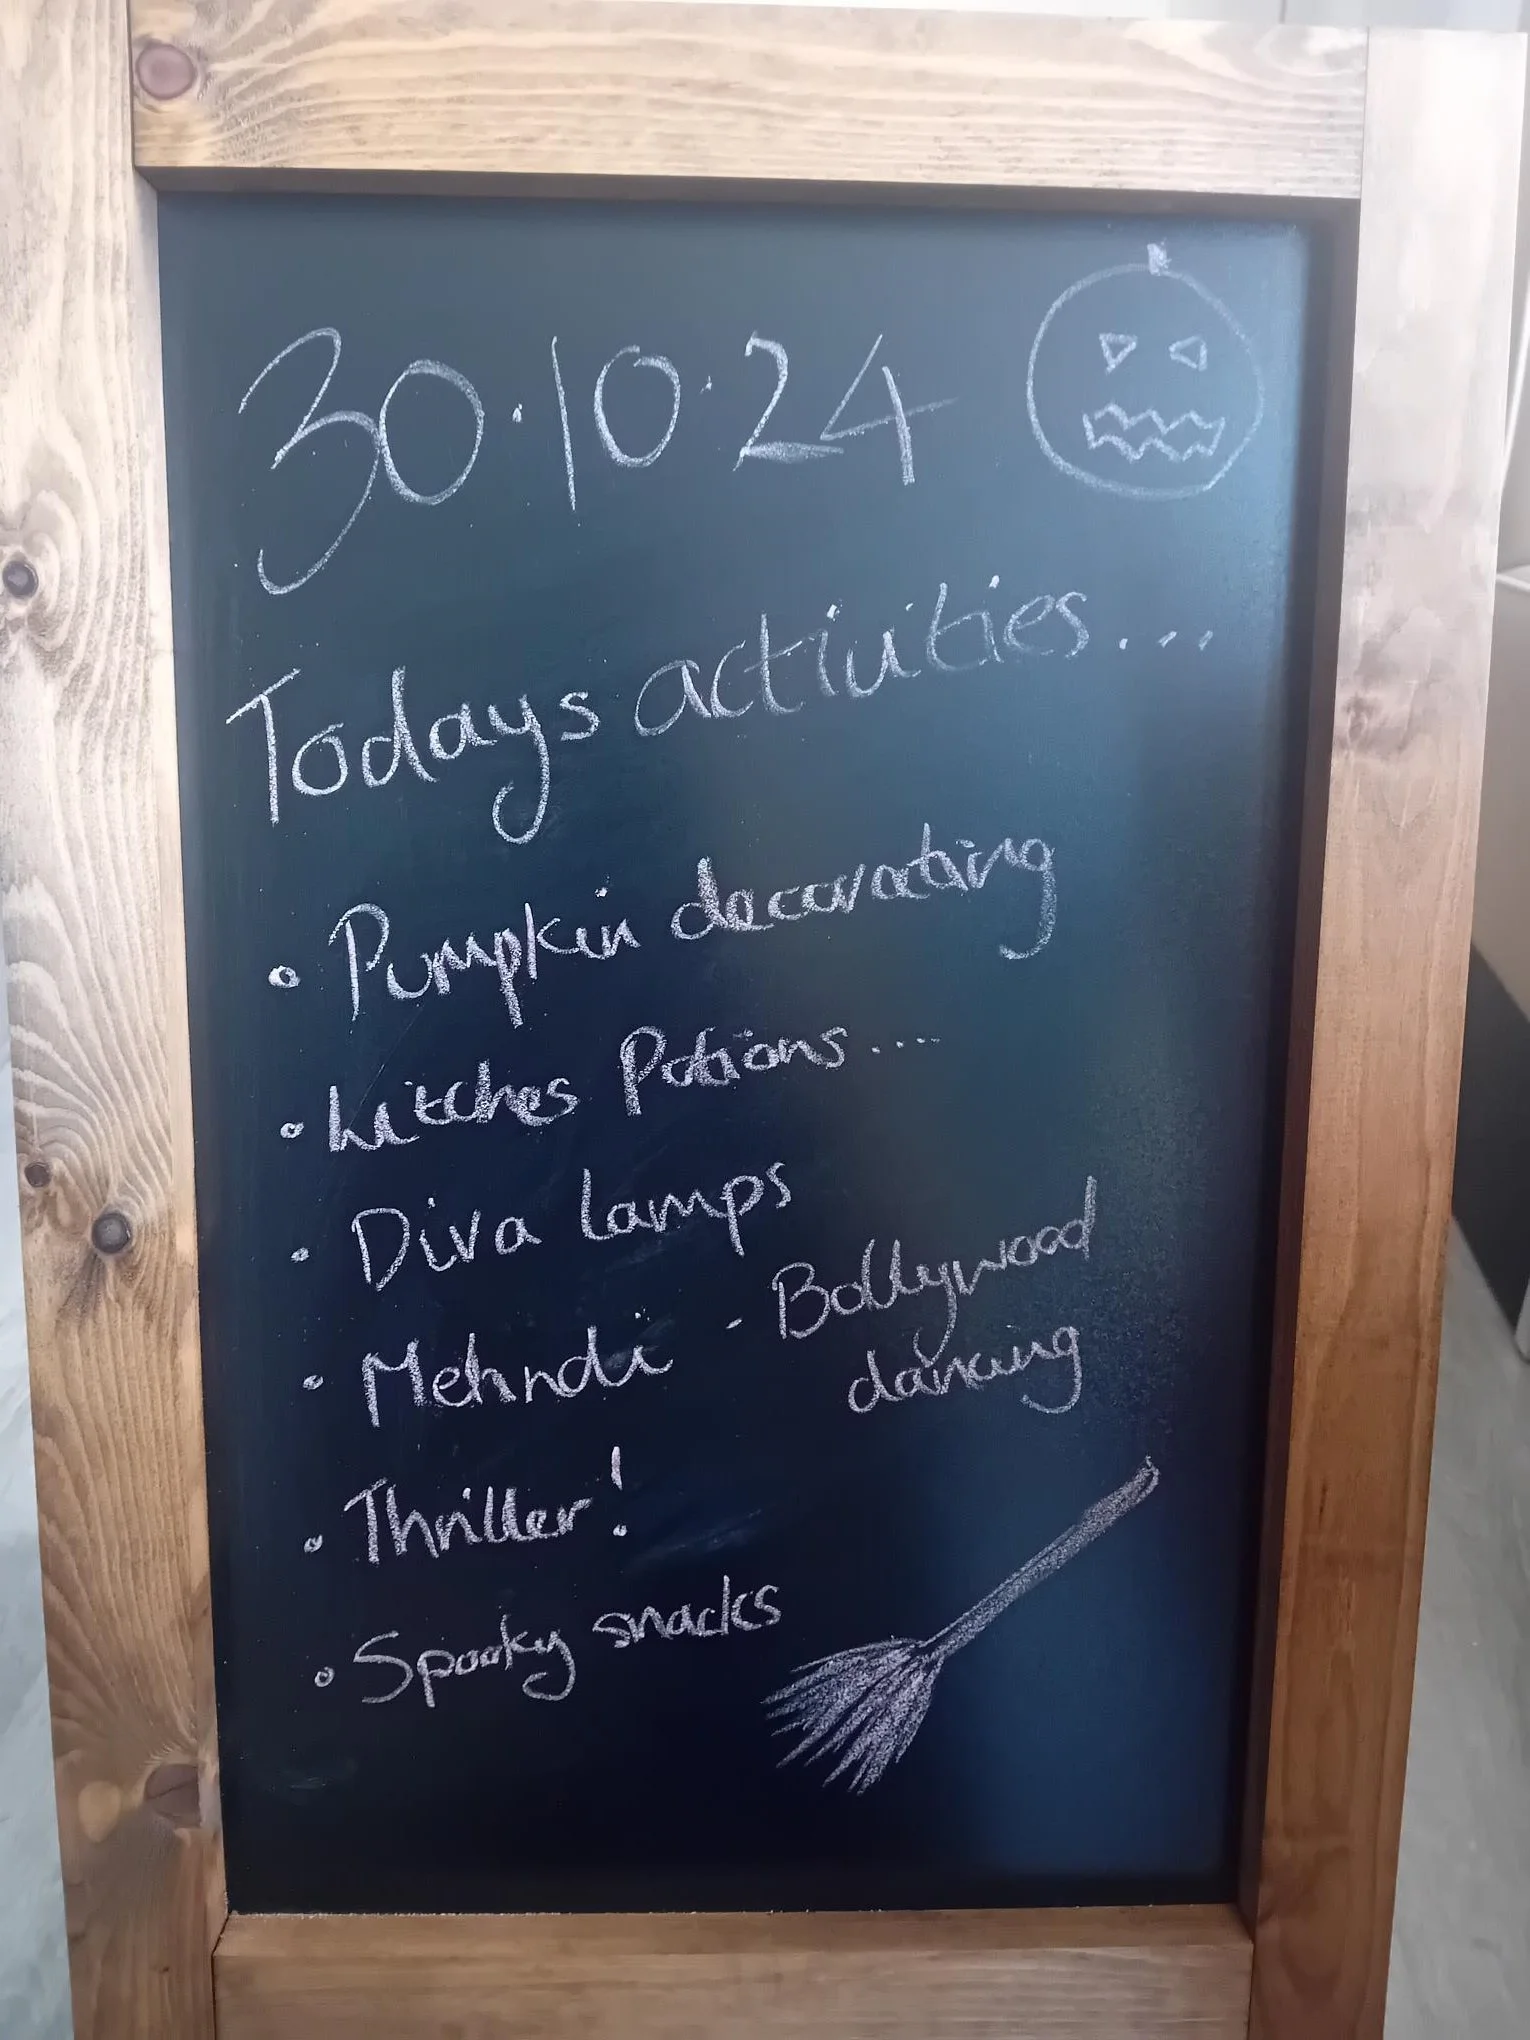 30.10.24
Todays activities...
• Pumpkin decorating
• Witches Potions....
• Diva lamps
• Mehndi - Bollywood
dancing
• Thriller!
• Spooky snacks